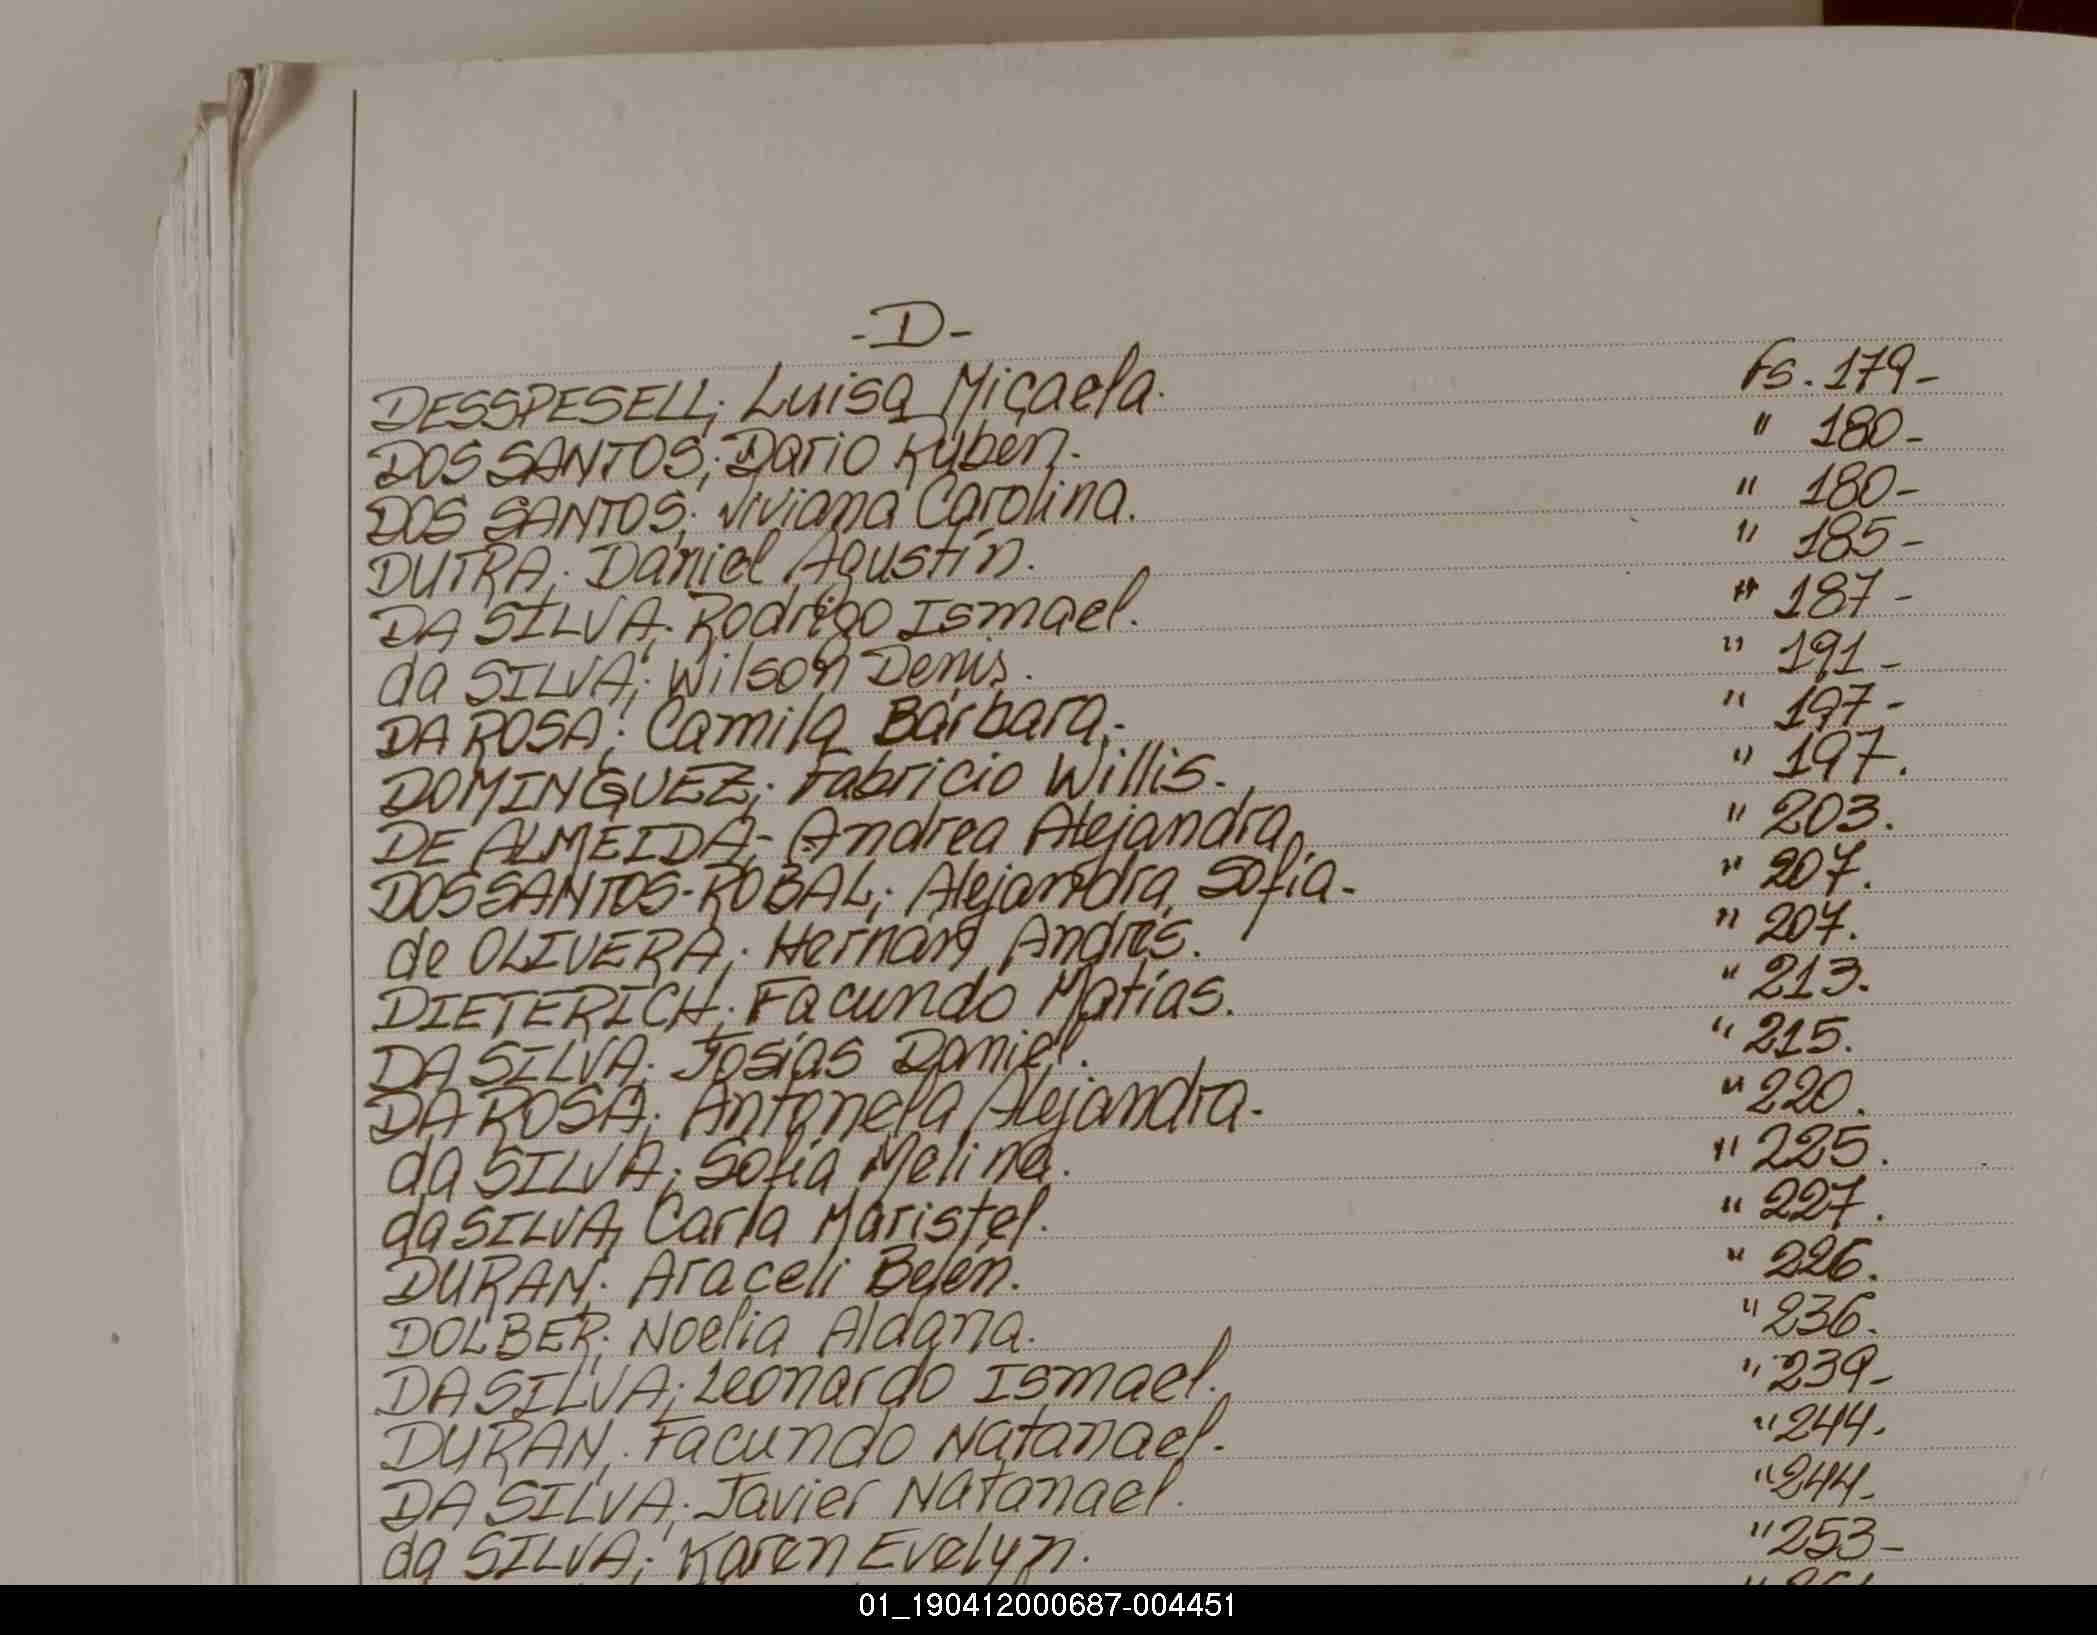 -D-
DESSPESELL; Luisa Micaela. Fs. 179-
DOS SANTOS; Dario Ruben. " 180-
DOS SANTOS; Viviana Carolina. " 180-
DUTRA; Daniel Agustín. " 185-
DA SILVA; Rodrigo Ismael. " 187-
da SILVA; Wilson Denis. " 191-
DA ROSA; Camila Bárbara. " 197-
DOMINGUEZ; Fabricio Willis. " 197.
DE ALMEIDA;- Andrea Alejandra. " 203.
DOS SANTOS-ROBAL; Alejandra Sofía- " 207.
de OLIVERA; Hernán Andrés. " 207.
DIETERICH; Facundo Matías. " 213.
DA SILVA; Josías Daniel. " 215.
DA ROSA; Antonela Alejandra- " 220.
da SILVA; Sofía Melina. " 225.
da SILVA; Carla Maristel. " 227.
DURAN; Araceli Belén. " 226.
DOLBER; Noelia Aldana. " 236.
DA SILVA; Leonardo Ismael. " 239-
DURAN; Facundo Natanael. " 244.
DA SILVA; Javier Natanael. " 244-
da SILVA; Karen Evelyn. " 253-
01_190412000687-004451